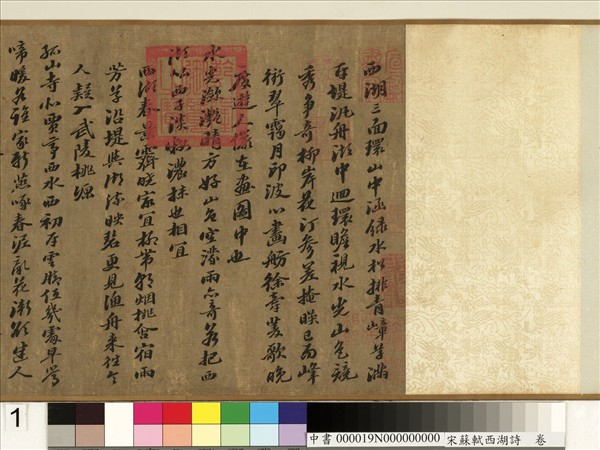 西湖三面環山中涵綠水松排青嶂草滿
平堤泛舟湖中迴環瞻視水光山色競
秀爭奇柳岸花汀參差掩映已而峰
銜翠靄月印波心畫舫徐牽菱歌晚
度遊人儼在畫圖中也
水光瀲灩晴方好山色空濛雨亦奇若把西
湖比西子淡粧濃抹也相宜
西湖春景霽曉家宜柳帶朝烟桃含宿雨
芳草沿堤與湖流映碧更見漁舟來往令
人疑入武陵桃塢
孤山寺北賈亭西水面初平雲腳低幾處早鶯
啼暖谷誰家新燕啄春泥亂花漸欲迷人
1
中書 000019N000000000 宋蘇軾西湖詩 卷